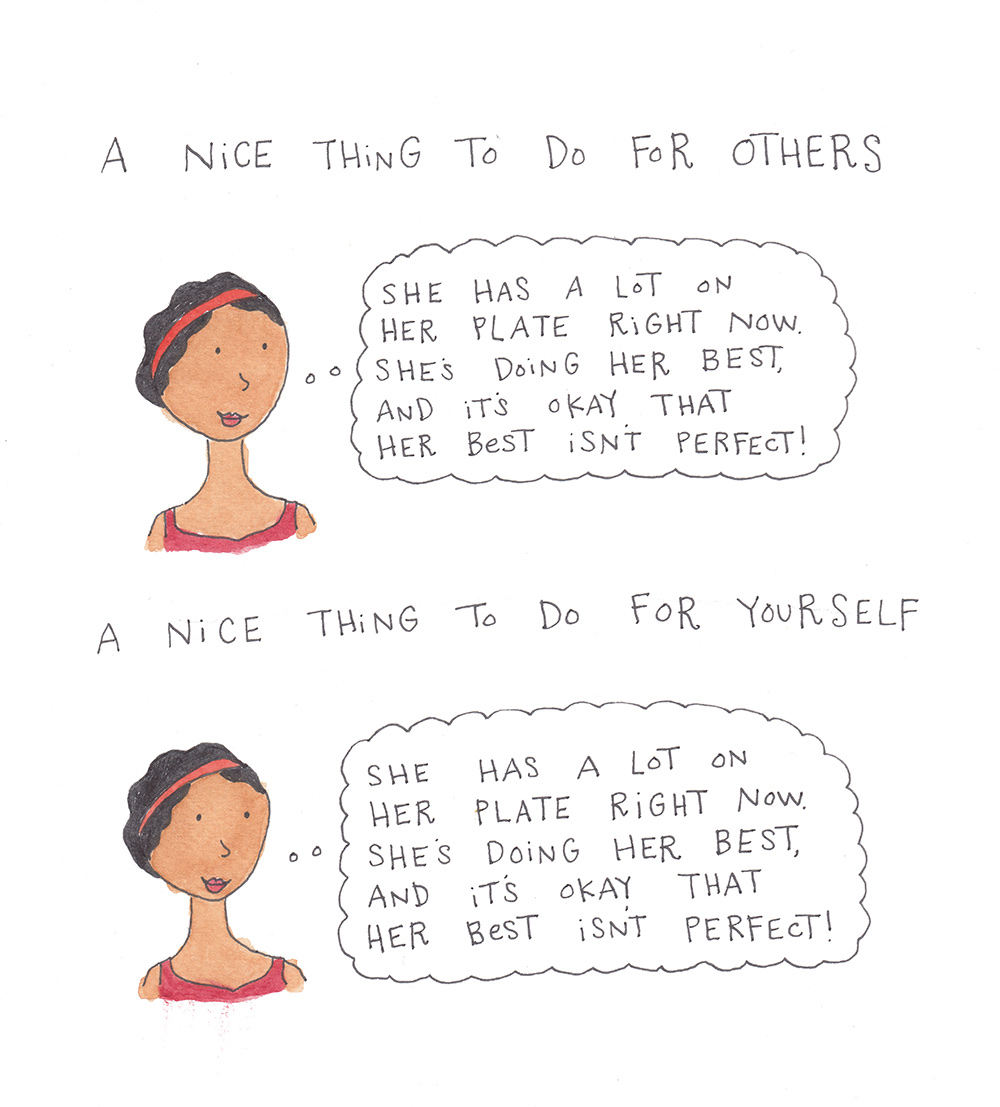 A NiCE THiNG TO DO FOR OTHERS
SHE HAS A LOT ON
HER PLATE RiGHT NOW.
SHE'S DOiNG HER BEST,
AND iT'S OKAY THAT
HER BEST iSN'T PERFECT!
A NiCE THiNG TO DO FOR YOURSELF
SHE HAS A LOT ON
HER PLATE RiGHT NOW.
SHE'S DOiNG HER BEST,
AND iT'S OKAY THAT
HER BEST iSN'T PERFECT!